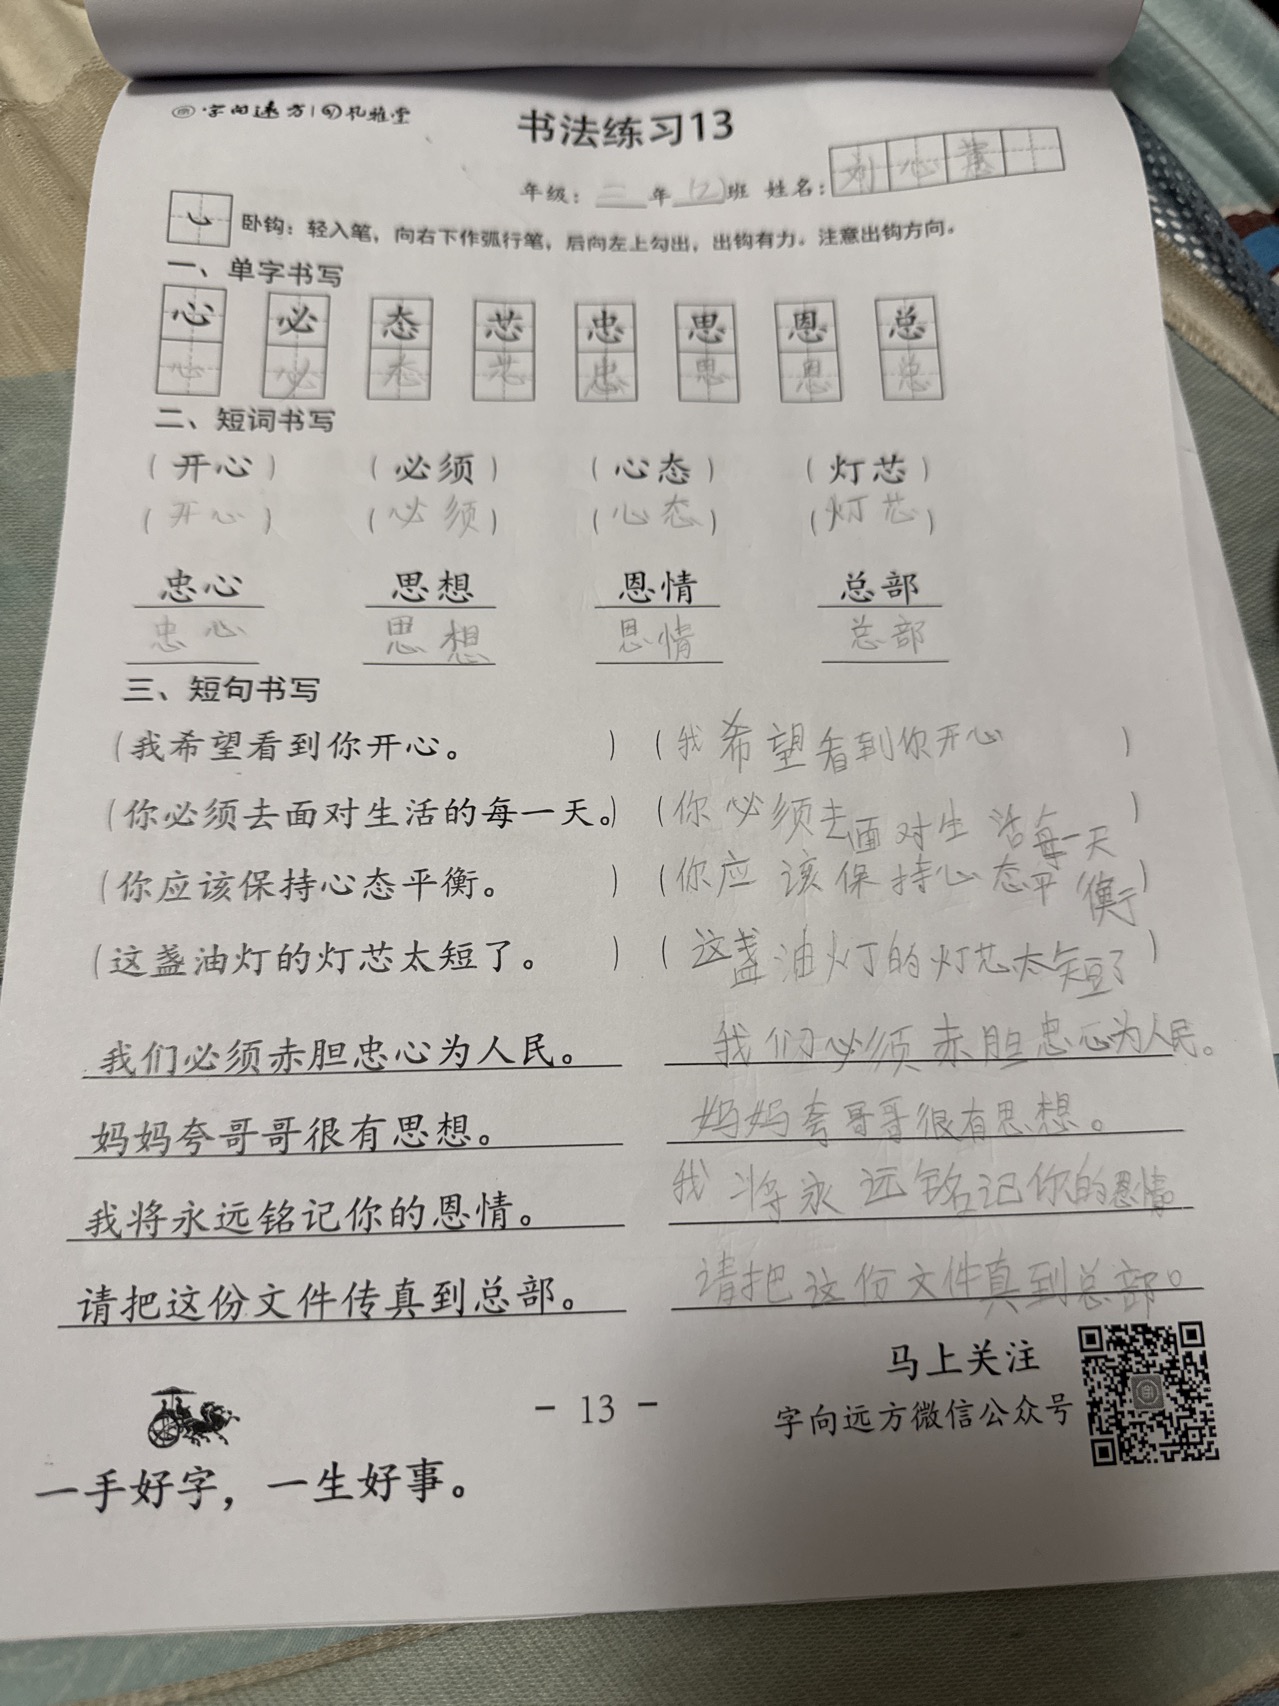 字向远方 | 礼雅堂
书法练习13
年级：二年(2)班 姓名：刘心慧
卧钩：轻入笔，向右下作弧行笔，后向左上勾出，出钩有力。注意出钩方向。
一、单字书写
心 必 态 芯 忠 思 恩 总
心 必 态 芯 忠 思 恩 总
二、短词书写
(开心) (必须) (心态) (灯芯)
(开心) (必须) (心态) (灯芯)
忠心 思想 恩情 总部
忠心 思想 恩情 总部
三、短句书写
(我希望看到你开心。) (我希望看到你开心)
(你必须去面对生活的每一天。) (你必须去面对生活每一天)
(你应该保持心态平衡。) (你应该保持心态平衡)
(这盏油灯的灯芯太短了。) (这盏油灯的灯芯太短了)
我们必须赤胆忠心为人民。 我们必须赤胆忠心为人民。
妈妈夸哥哥很有思想。 妈妈夸哥哥很有思想。
我将永远铭记你的恩情。 我将永远铭记你的恩情。
请把这份文件传真到总部。 请把这份文件真到总部。
马上关注
字向远方微信公众号
- 13 -
一手好字，一生好事。